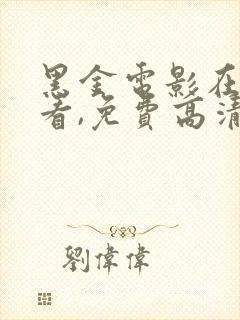 黑金電影在
看,免費高清
劉偉偉